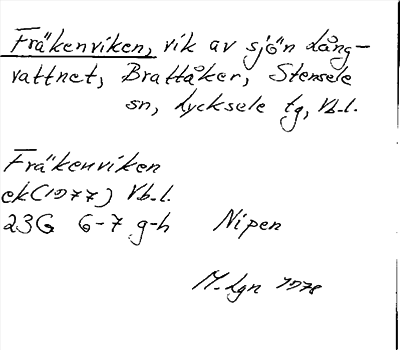 Fräkenviken, vik av sjön Lång-
vattnet, Brattåker, Stensele
sn, Lycksele tg, Vb.l.
Fräkenviken
ek (1977) Vb.l.
23G 6-7 g-h Nipen
M. Lgn 1978